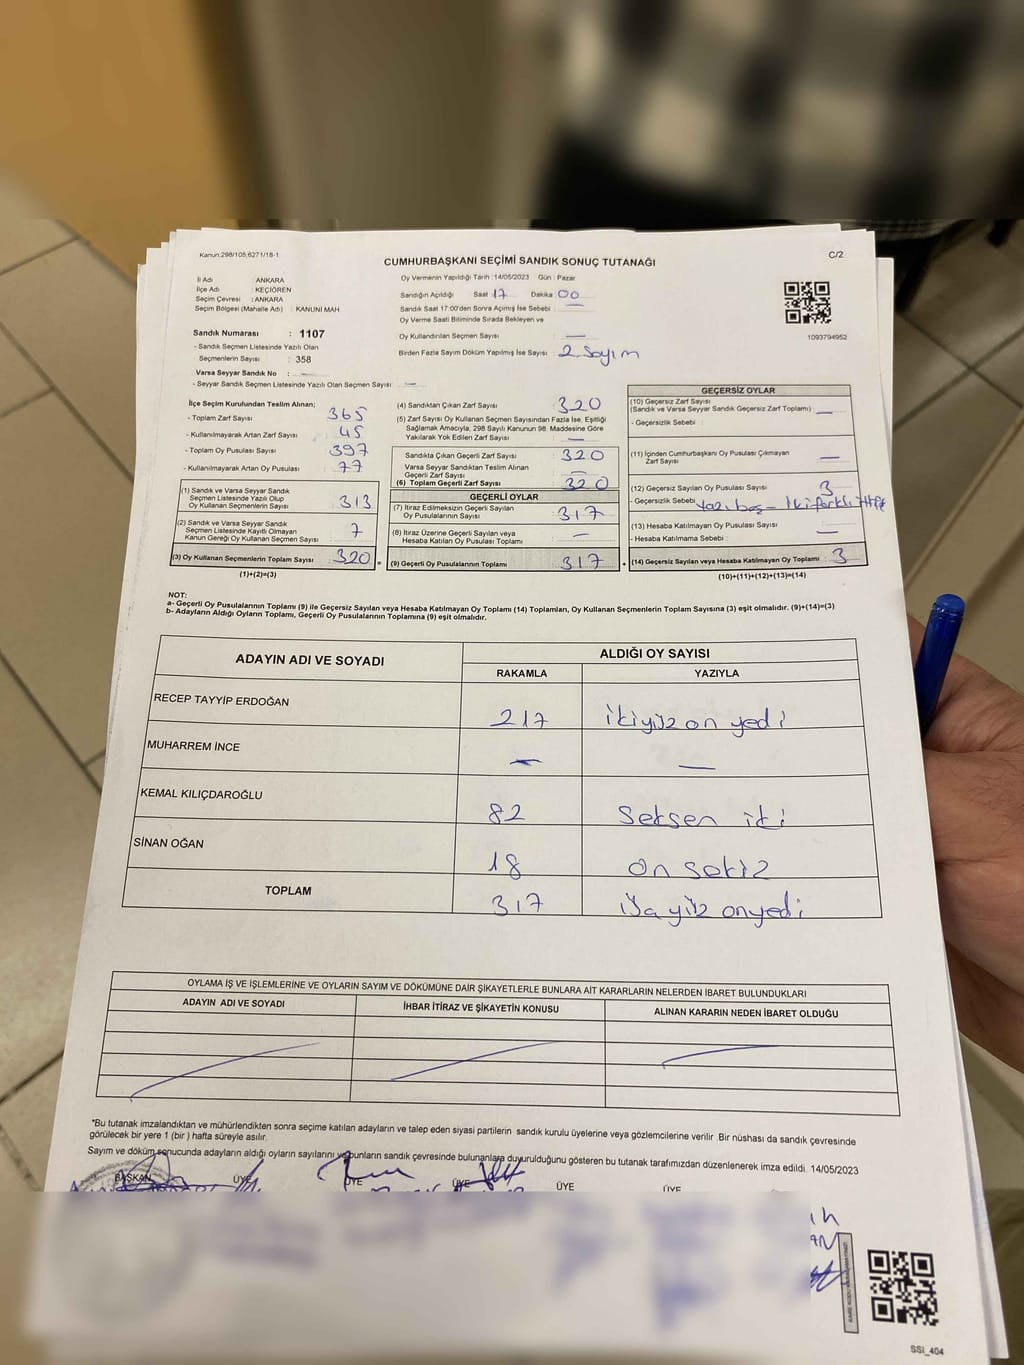 Kanun:298/105,6271/18-1
C/2
CUMHURBAŞKANI SEÇİMİ SANDIK SONUÇ TUTANAĞI
İl Adı : ANKARA
İlçe Adı : KEÇİÖREN
Seçim Çevresi : ANKARA
Seçim Bölgesi (Mahalle Adı) : KANUNİ MAH
Sandık Numarası : 1107
- Sandık Seçmen Listesinde Yazılı Olan
Seçmenlerin Sayısı : 358
Varsa Seyyar Sandık No : —
- Seyyar Sandık Seçmen Listesinde Yazılı Olan Seçmen Sayısı : —
Oy Vermenin Yapıldığı Tarih :14/05/2023 Gün : Pazar
Sandığın Açıldığı Saat 17 Dakika 00
Sandık Saat 17:00'den Sonra Açımış İse Sebebi : —
Oy Verme Saati Bitiminde Sırada Bekleyen ve
Oy Kullandırılan Seçmen Sayısı : —
Birden Fazla Sayım Döküm Yapılmış İse Sayısı : 2. Sayım
1093794952
İlçe Seçim Kurulundan Teslim Alınan;
- Toplam Zarf Sayısı : 365
- Kullanılmayarak Artan Zarf Sayısı : 45
- Toplam Oy Pusulası Sayısı : 397
- Kullanılmayarak Artan Oy Pusulası : 77
(1) Sandık ve Varsa Seyyar Sandık
Seçmen Listesinde Yazılı Olup
Oy Kullanan Seçmenlerin Sayısı : 313
(2) Sandık ve Varsa Seyyar Sandık
Seçmen Listesinde Kayıtlı Olmayan
Kanun Gereği Oy Kullanan Seçmen Sayısı : 7
(3) Oy Kullanan Seçmenlerin Toplam Sayısı : 320
(1)+(2)=(3)
(4) Sandıktan Çıkan Zarf Sayısı : 320
(5) Zarf Sayısı Oy Kullanan Seçmen Sayısından Fazla İse, Eşitliği
Sağlamak Amacıyla, 298 Sayılı Kanunun 98. Maddesine Göre
Yakılarak Yok Edilen Zarf Sayısı : —
Sandıkta Çıkan Geçerli Zarf Sayısı : 320
Varsa Seyyar Sandıktan Teslim Alınan
Geçerli Zarf Sayısı : —
(6) Toplam Geçerli Zarf Sayısı : 320
GEÇERLİ OYLAR
(7) İtiraz Edilmeksizin Geçerli Sayılan
Oy Pusulalarının Sayısı : 317
(8) İtiraz Üzerine Geçerli Sayılan veya
Hesaba Katılan Oy Pusulası Toplamı : —
(9) Geçerli Oy Pusulalarının Toplamı : 317
GEÇERSİZ OYLAR
(10) Geçersiz Zarf Sayısı
(Sandık ve Varsa Seyyar Sandık Geçersiz Zarf Toplamı) : —
- Geçersizlik Sebebi :
(11) İçinden Cumhurbaşkanı Oy Pusulası Çıkmayan
Zarf Sayısı : —
(12) Geçersiz Sayılan Oy Pusulası Sayısı : 3
- Geçersizlik Sebebi : Yazı, boş - İki farklı
(13) Hesaba Katılmayan Oy Pusulası Sayısı : —
- Hesaba Katılmama Sebebi :
(14) Geçersiz Sayılan veya Hesaba Katılmayan Oy Toplamı : 3
(10)+(11)+(12)+(13)=(14)
NOT:
a- Geçerli Oy Pusulalarının Toplamı (9) ile Geçersiz Sayılan veya Hesaba Katılmayan Oy Toplamı (14) Toplamları, Oy Kullanan Seçmenlerin Toplam Sayısına (3) eşit olmalıdır. (9)+(14)=(3)
b- Adayların Aldığı Oyların Toplamı, Geçerli Oy Pusulalarının Toplamına (9) eşit olmalıdır.
ADAYIN ADI VE SOYADI ALDIĞI OY SAYISI
RAKAMLA YAZIYLA
RECEP TAYYİP ERDOĞAN 217 ikiyüz on yedi
MUHARREM İNCE — —
KEMAL KILIÇDAROĞLU 82 Seksen iki
SİNAN OĞAN 18 on sekiz
TOPLAM 317 yüz onyedi
OYLAMA İŞ VE İŞLEMLERİNE VE OYLARIN SAYIM VE DÖKÜMÜNE DAİR ŞİKAYETLERLE BUNLARA AİT KARARLARIN NELERDEN İBARET BULUNDUKLARI
ADAYIN ADI VE SOYADI İHBAR İTİRAZ VE ŞİKAYETİN KONUSU ALINAN KARARIN NEDEN İBARET OLDUĞU
*Bu tutanak imzalandıktan ve mühürlendikten sonra seçime katılan adayların ve talep eden siyasi partilerin sandık kurulu üyelerine veya gözlemcilerine verilir .Bir nüshası da sandık çevresinde
görülecek bir yere 1 (bir ) hafta süreyle asılır.
Sayım ve döküm sonucunda adayların aldığı oyların sayılarını ve bunların sandık çevresinde bulunanlara duyurulduğunu gösteren bu tutanak tarafımızdan düzenlenerek imza edildi. 14/05/2023
BAŞKAN ÜYE ÜYE ÜYE ÜYE ÜYE
SSI_404